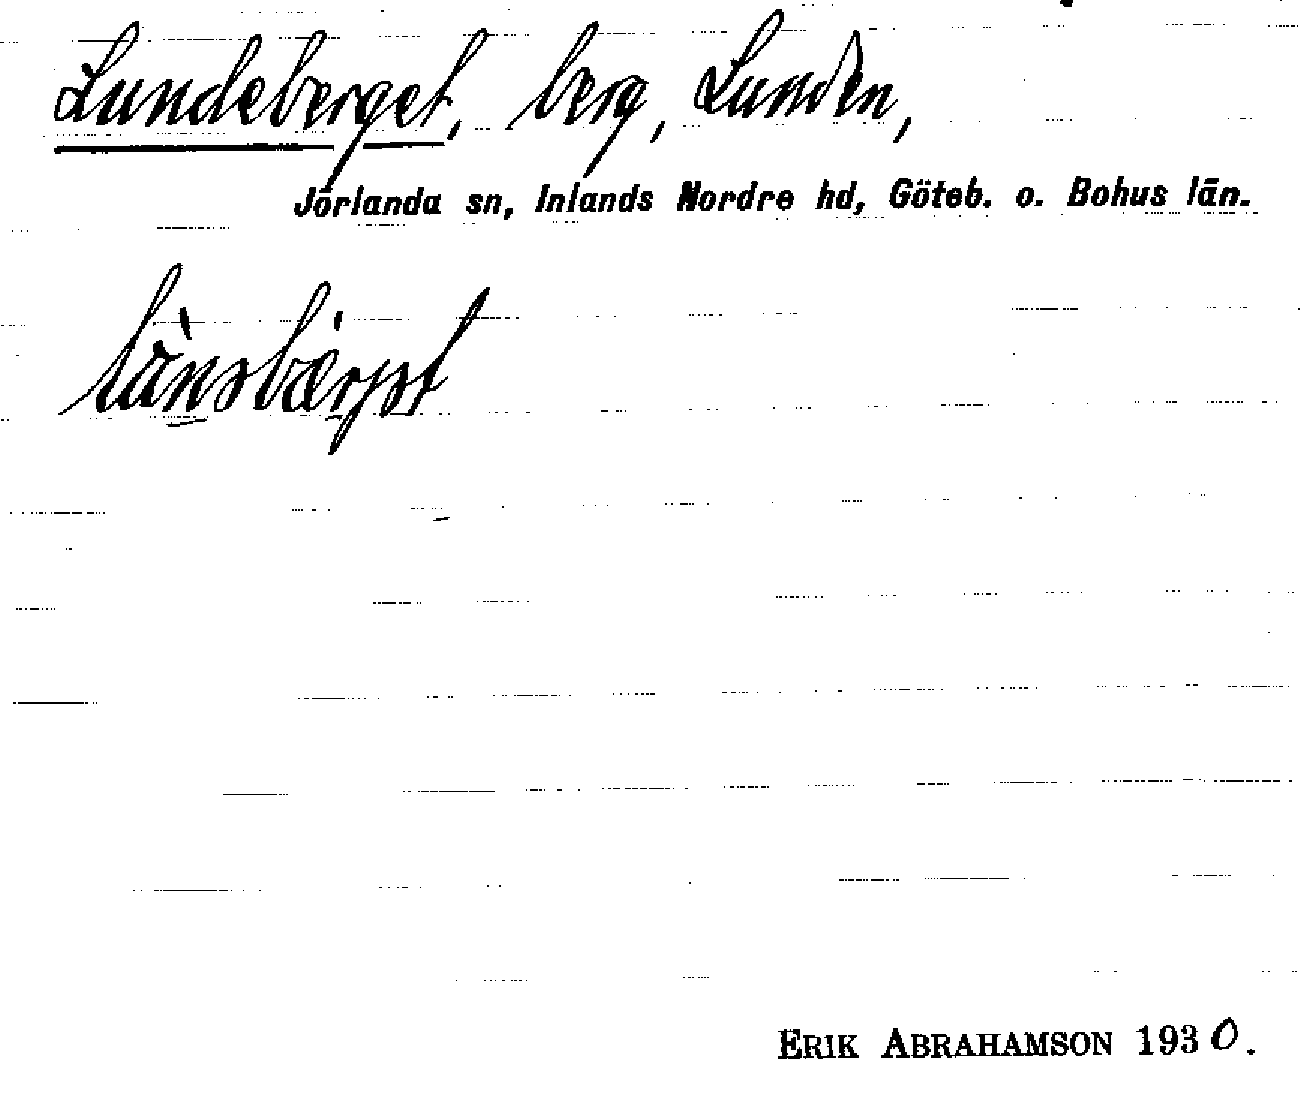 Lundeberget, berg, Lunden,
Jörlanda sn, Inlands Nordre hd, Göteb. o. Bohus län.
ERIK ABRAHAMSON 1930.